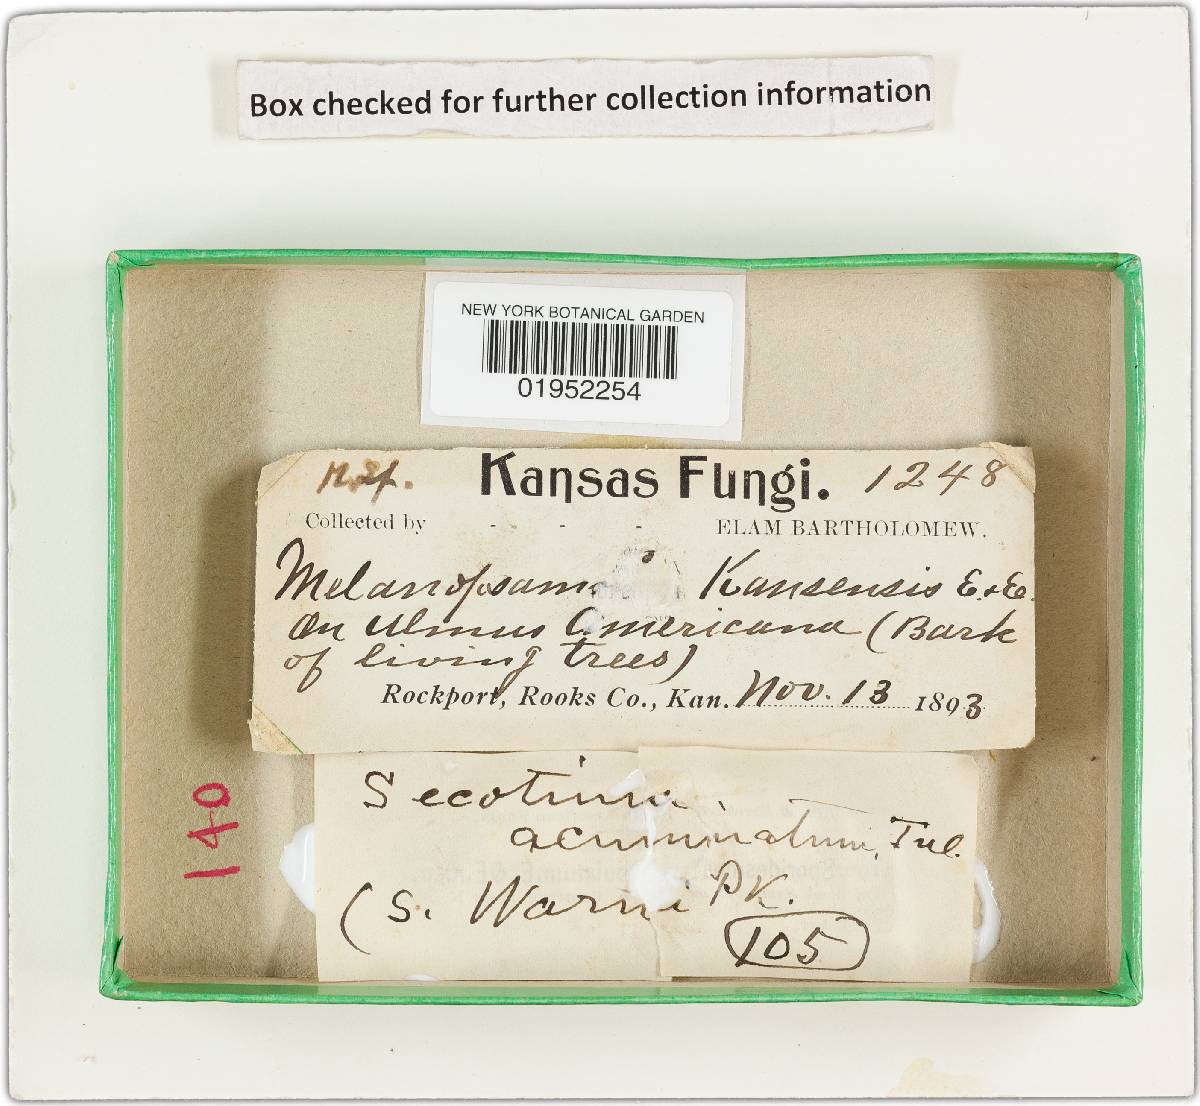 Box checked for further collection information
NEW YORK BOTANICAL GARDEN
01952254
Kansas Fungi. 1248
Collected by - - - ELAM BARTHOLOMEW.
Melanopsam Kansensis E. & E.
On Ulmus Americana (Bark
of living trees)
Rockport, Rooks Co., Kan. Nov. 13 1893
140
Secotium
acuminatum, Tul.
(S. Warnei Pk.
105